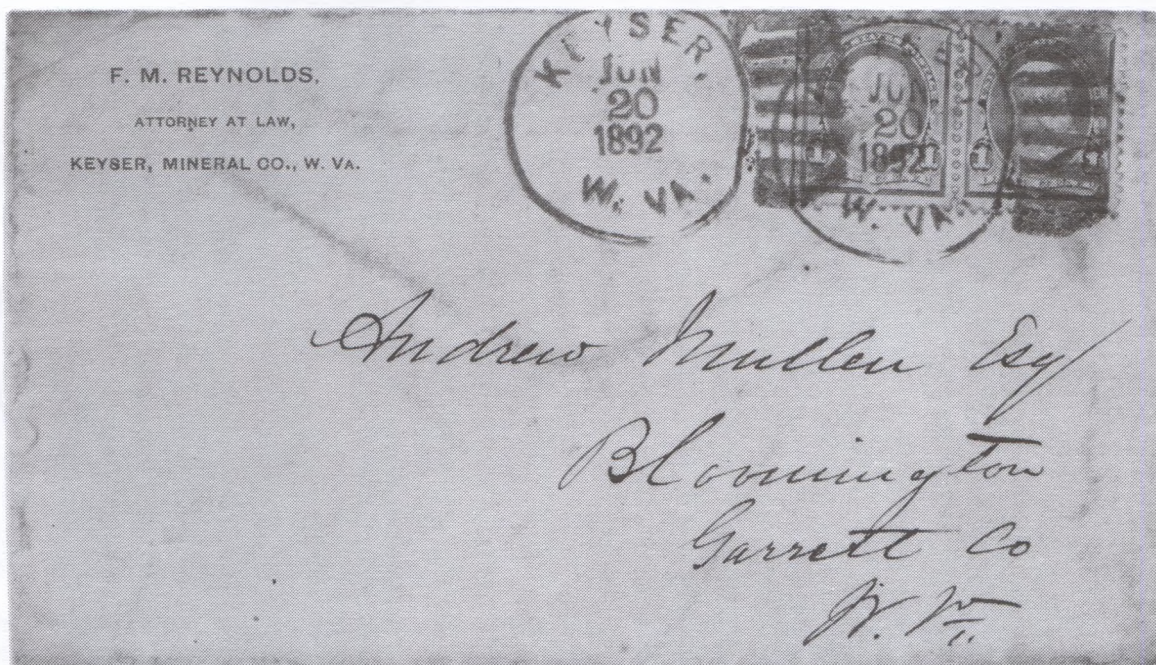 F. M. REYNOLDS,
ATTORNEY AT LAW,
KEYSER, MINERAL CO., W. VA.
KEYSER,
JUN
20
1892
W. VA.
JUN
20
1892
W. VA
1 1
1 1
Andrew Mullen Esq
Bloomington
Garrett Co
W. Va.